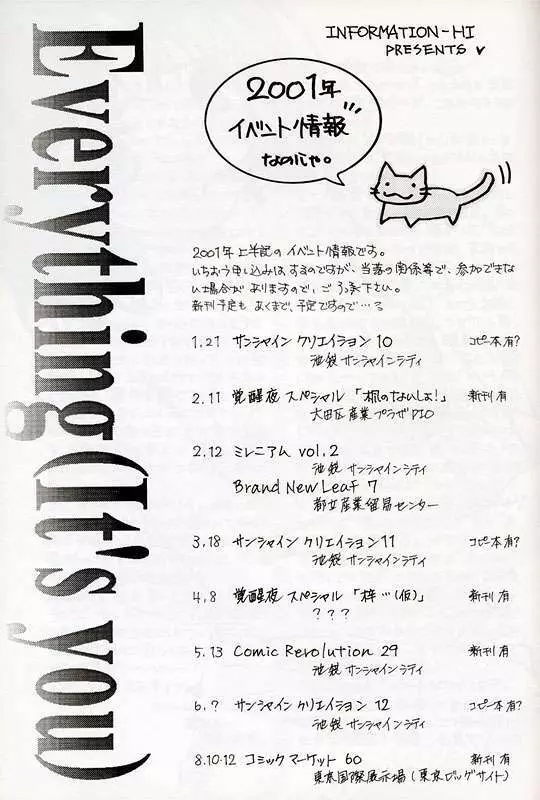 Everything (It's you)
INFORMATION-HI
PRESENTS ♥
2001年
イベント情報
なのじゃ。
2001年上半記のイベント情報です。
いちおう申し込みはするのですが、当落の関係等で、参加できな
い場合がありますので、ご了承下さい。
新刊予定も あくまで、予定ですので…
1.21 サンシャイン クリエイション 10 コピー本有?
池袋 サンシャインシティ
2.11 覚醒夜 スペシャル「楓のないしょ!」 新刊有
大田区産業プラザPIO
2.12 ミレニアム vol.2
池袋 サンシャインシティ
Brand New Leaf 7
都立産業貿易センター
3.18 サンシャイン クリエイション 11 コピー本有?
池袋 サンシャインシティ
4.8 覚醒夜 スペシャル「梓…(仮)」 新刊有
???
5.13 Comic Revolution 29 新刊有
池袋 サンシャインシティ
6.? サンシャイン クリエイション 12 コピー本有?
池袋 サンシャインシティ
8.10-12 コミックマーケット 60 新刊有
東京国際展示場(東京ビッグサイト)